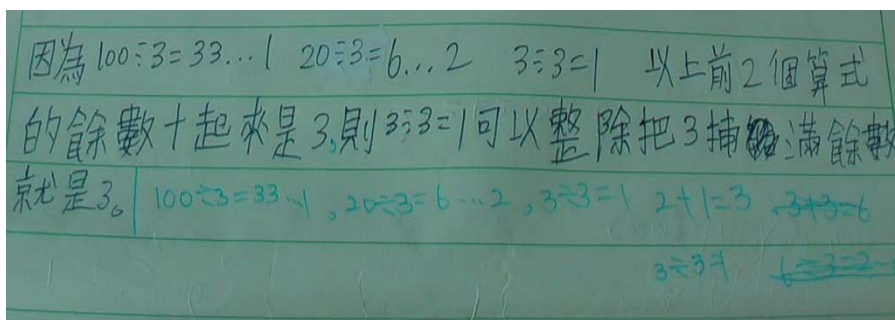 因為100÷3=33...1 20÷3=6...2 3÷3=1 以上前2個算式
的餘數+起來是3,則3÷3=1可以整除把3捕滿餘數
就是3。 100÷3=33...1,20÷3=6...2,3÷3=1 2+1=3 3+3=6
3÷3=1 6÷3=2